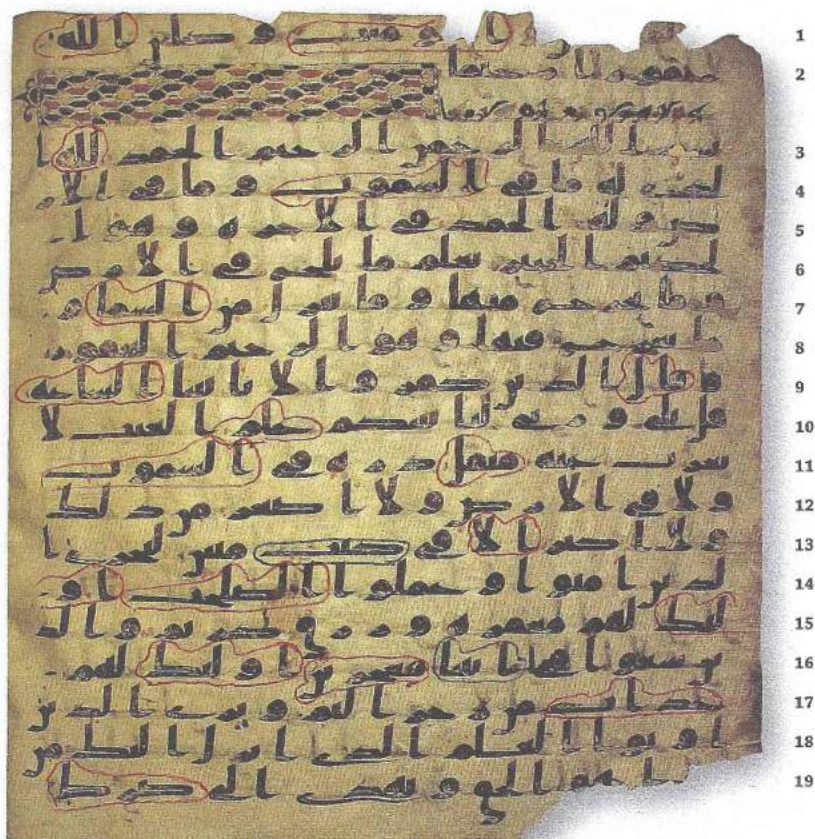 1 المومنت و كان الله
2 غفورا رحيما
3 بسم الله الرحمن الرحيم الحمد لله ا
4 لذي له ما في السموت و ما في الار
5 ض و له الحمد في الاخره و هو ا
6 لحكيم الخبير يعلم ما يلج في الارض
7 و ما يخرج منها و ما ينزل من السما و
8 ما يعرج فيها و هو الرحيم الغفور
9 و قال الذين كفروا لا تاتينا الساعه
10 قل بلى و ربي لتاتينكم علم الغيب لا
11 يعزب عنه مثقل ذره في السموت
12 ولا في الارض ولا اصغر من ذلك
13 ولا اكبر الا في كتب مبين ليجزي ا
14 لذين امنوا و عملوا الصلحت او
15 لئك لهم مغفره و رزق كريم و الذ
16 ين سعو في ايتنا معجزين اولئك لهم
17 عذاب من رجز اليم و يرى الذين
18 اوتوا العلم الذي انزل اليك من
19 ربك هو الحق و يهدي الى صرط